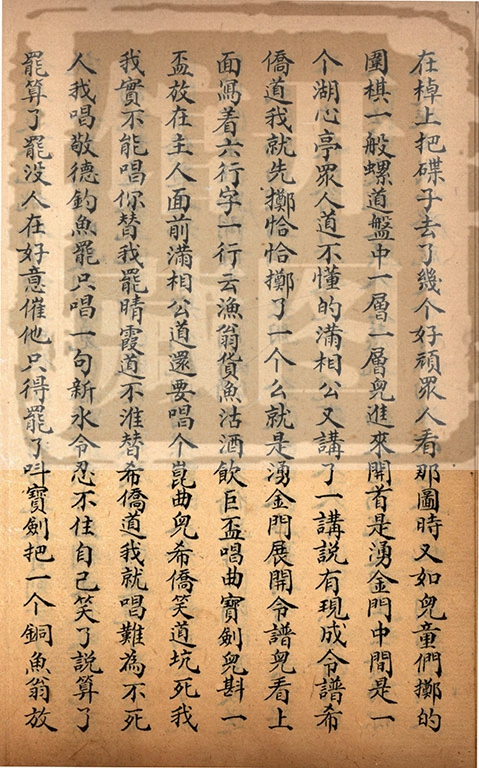 在棹上把碟子去了幾个好頑眾人看那圖時又如兒童們擲的
圍棋一般螺道盤中一層一層兒進來開首是湧金門中間是一
个湖心亭眾人道不懂的滿相公又講了一講説有現成令譜希
僑道我就先擲恰恰擲了一个么就是湧金門展開令譜兒看上
面寫着六行字一行云漁翁貨魚沽酒飲巨盃唱曲寶劍兒斟一
盃放在主人面前滿相公道還要唱个崑曲兒希僑笑道坑死我
我實不能唱你替我罷晴霞道不准替希僑道我就唱難為不死
人我唱敬德釣魚罷只唱一句新水令忍不住自己笑了說算了
罷算了罷没人在好意催他只得罷了呌寶劍把一个銅魚翁放